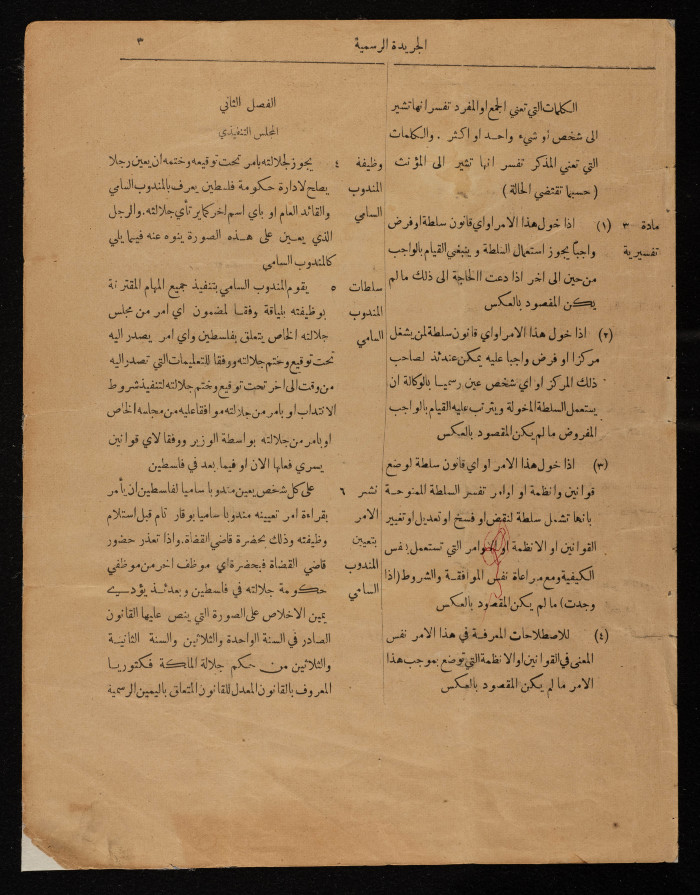 الجريدة الرسمية
٣
الكلمات التي تعني الجمع او المفرد تفسر انها تشير
الى شخص او شيء واحد او اكثر . والكلمات
التي تعني المذكر تفسر انها تشير الى المؤنث
( حسبما تقتضي الحالة )
مادة ٣
تفسيرية
(١) اذا خول هذا الامر او اي قانون سلطة او فرض
واجباً يجوز استعمال السلطة و ينبغي القيام بالواجب
من حين الى اخر اذا دعت الحاجة الى ذلك ما لم
يكن المقصود بالعكس
(٢) اذا خول هذا الامر او اي قانون سلطة لمن يشغل
مركزا او فرض واجبا عليه يمكن عندئذ لصاحب
ذلك المركز او اي شخص عين رسميا بالوكالة ان
يستعمل السلطة المخولة و يترتب عليه القيام بالواجب
المفروض ما لم يكن المقصود بالعكس
(٣) اذا خول هذا الامر او اي قانون سلطة لوضع
قوانين وانظمة او اوامر تفسر السلطة الممنوحة
بانها تشمل سلطة لنقض او فسخ او تعديل او تغيير
القوانين او الانظمة او الاوامر التي تستعمل نفس
الكيفية ومع مراعاة نفس الموافقة والشروط ( اذا
وجدت ) ما لم يكن المقصود بالعكس
(٤) للاصطلاحات المعرفة في هذا الامر نفس
المعنى في القوانين او الانظمة التي توضع بموجب هذا
الامر ما لم يكن المقصود بالعكس
الفصل الثاني
المجلس التنفيذي
وظيفة ٤
المندوب
السامي
يجوز لجلالته بامر تحت توقيعه وختمه ان يعين رجلا
يصلح لادارة حكومة فلسطين يعرف بالمندوب السامي
والقائد العام او باي اسم اخر كما يرتأي جلالته . والرجل
الذي يعين على هذه الصورة ينوه عنه فيما يلي
كالمندوب السامي
سلطات ٥
المندوب
السامي
يقوم المندوب السامي بتنفيذ جميع المهام المقترنة
بوظيفته بلياقة وفقا لمضمون اي امر من مجلس
جلالته الخاص يتعلق بفلسطين واي امر يصدر اليه
تحت توقيع وختم جلالته ووفقا للتعليمات التي تصدر اليه
من وقت الى اخر تحت توقيع وختم جلالته لتنفيذ شروط
الانتداب او بامر من جلالته موافقا عليه من مجلسه الخاص
او بامر من جلالته بواسطة الوزير ووفقا لاي قوانين
يسري فعلها الان او فيما بعد في فلسطين
نشر ٦
الامر
بتعيين
المندوب
السامي
على كل شخص يعين مندوبا ساميا لفلسطين ان يأمر
بقراءة امر تعيينه مندوبا ساميا بوقار تام قبل استلام
وظيفته وذلك بحضرة قاضي القضاة . واذا تعذر حضور
قاضي القضاة فبحضرة اي موظف اخر من موظفي
حكومة جلالته في فلسطين وبعدئذ يؤدي
يمين الاخلاص على الصورة التي ينص عليها القانون
الصادر في السنة الواحدة والثلاثين والسنة الثانية
والثلاثين من حكم جلالة الملكة فكتوريا
المعروف بالقانون المعدل للقانون المتعلق باليمين الرسمية